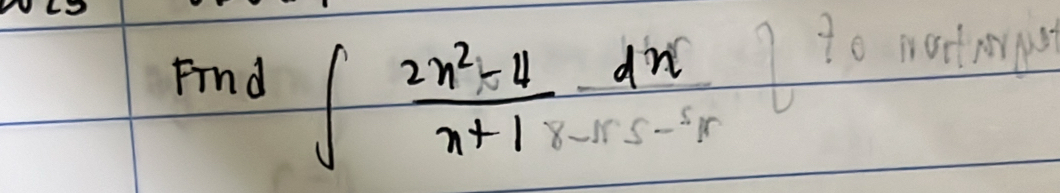 Find ∫ (2x² - 4)/(x + 1) dx